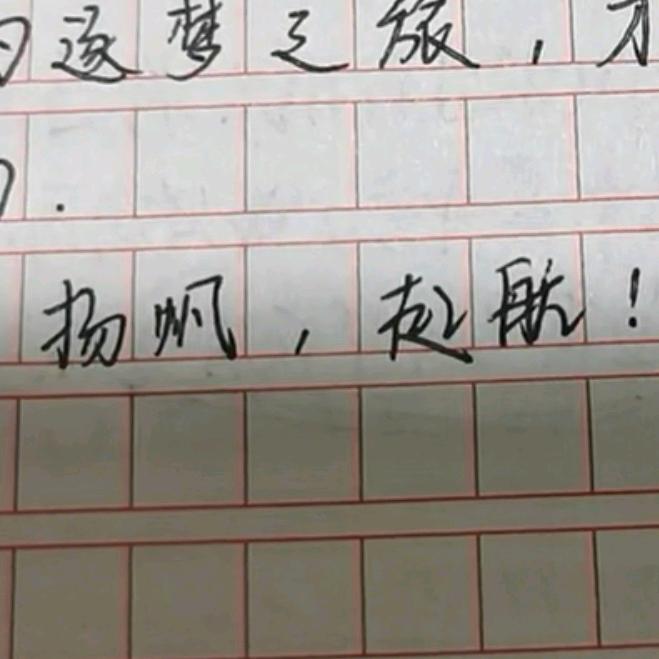 逐梦之旅，
.
扬帆，起航！